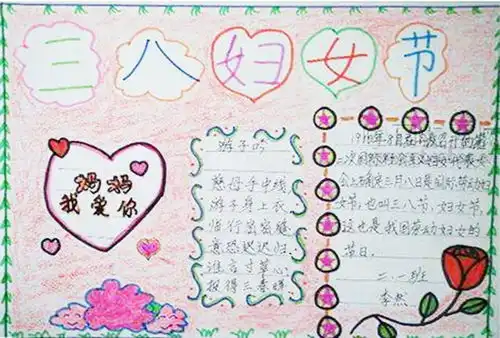 三八妇女节
妈妈
我爱你
游子吟
慈母手中线
游子身上衣
临行密密缝
意恐迟迟归
谁言寸草心
报得三春晖
1910年8月在
二次国际社会主义妇女代表大
会上确定三月八日是国际劳动妇
女节,也叫三八节,妇女节,
这也是我国劳动妇女的
节日。
二、一班
李然